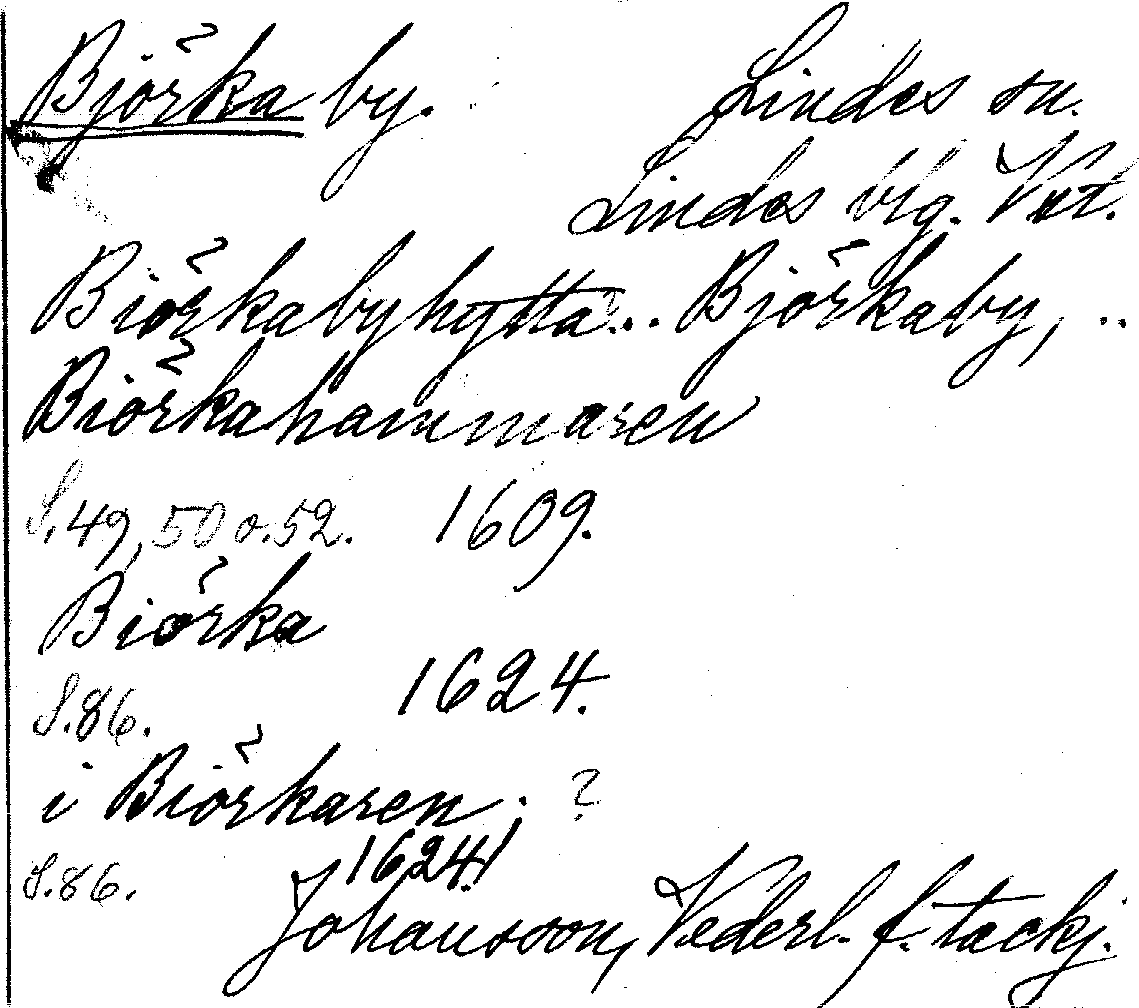 Björka by. Lindes sn.
Lindes blg. Vstm.
Biörkabyhytta... Björkaby, ..
Biörkahammaren
S. 49, 50 o. 52. 1609.
Biörka
S. 86. 1624.
i Biörkaren; ?
S. 86. 1624!
Johansson, Vederl. f. tackj.